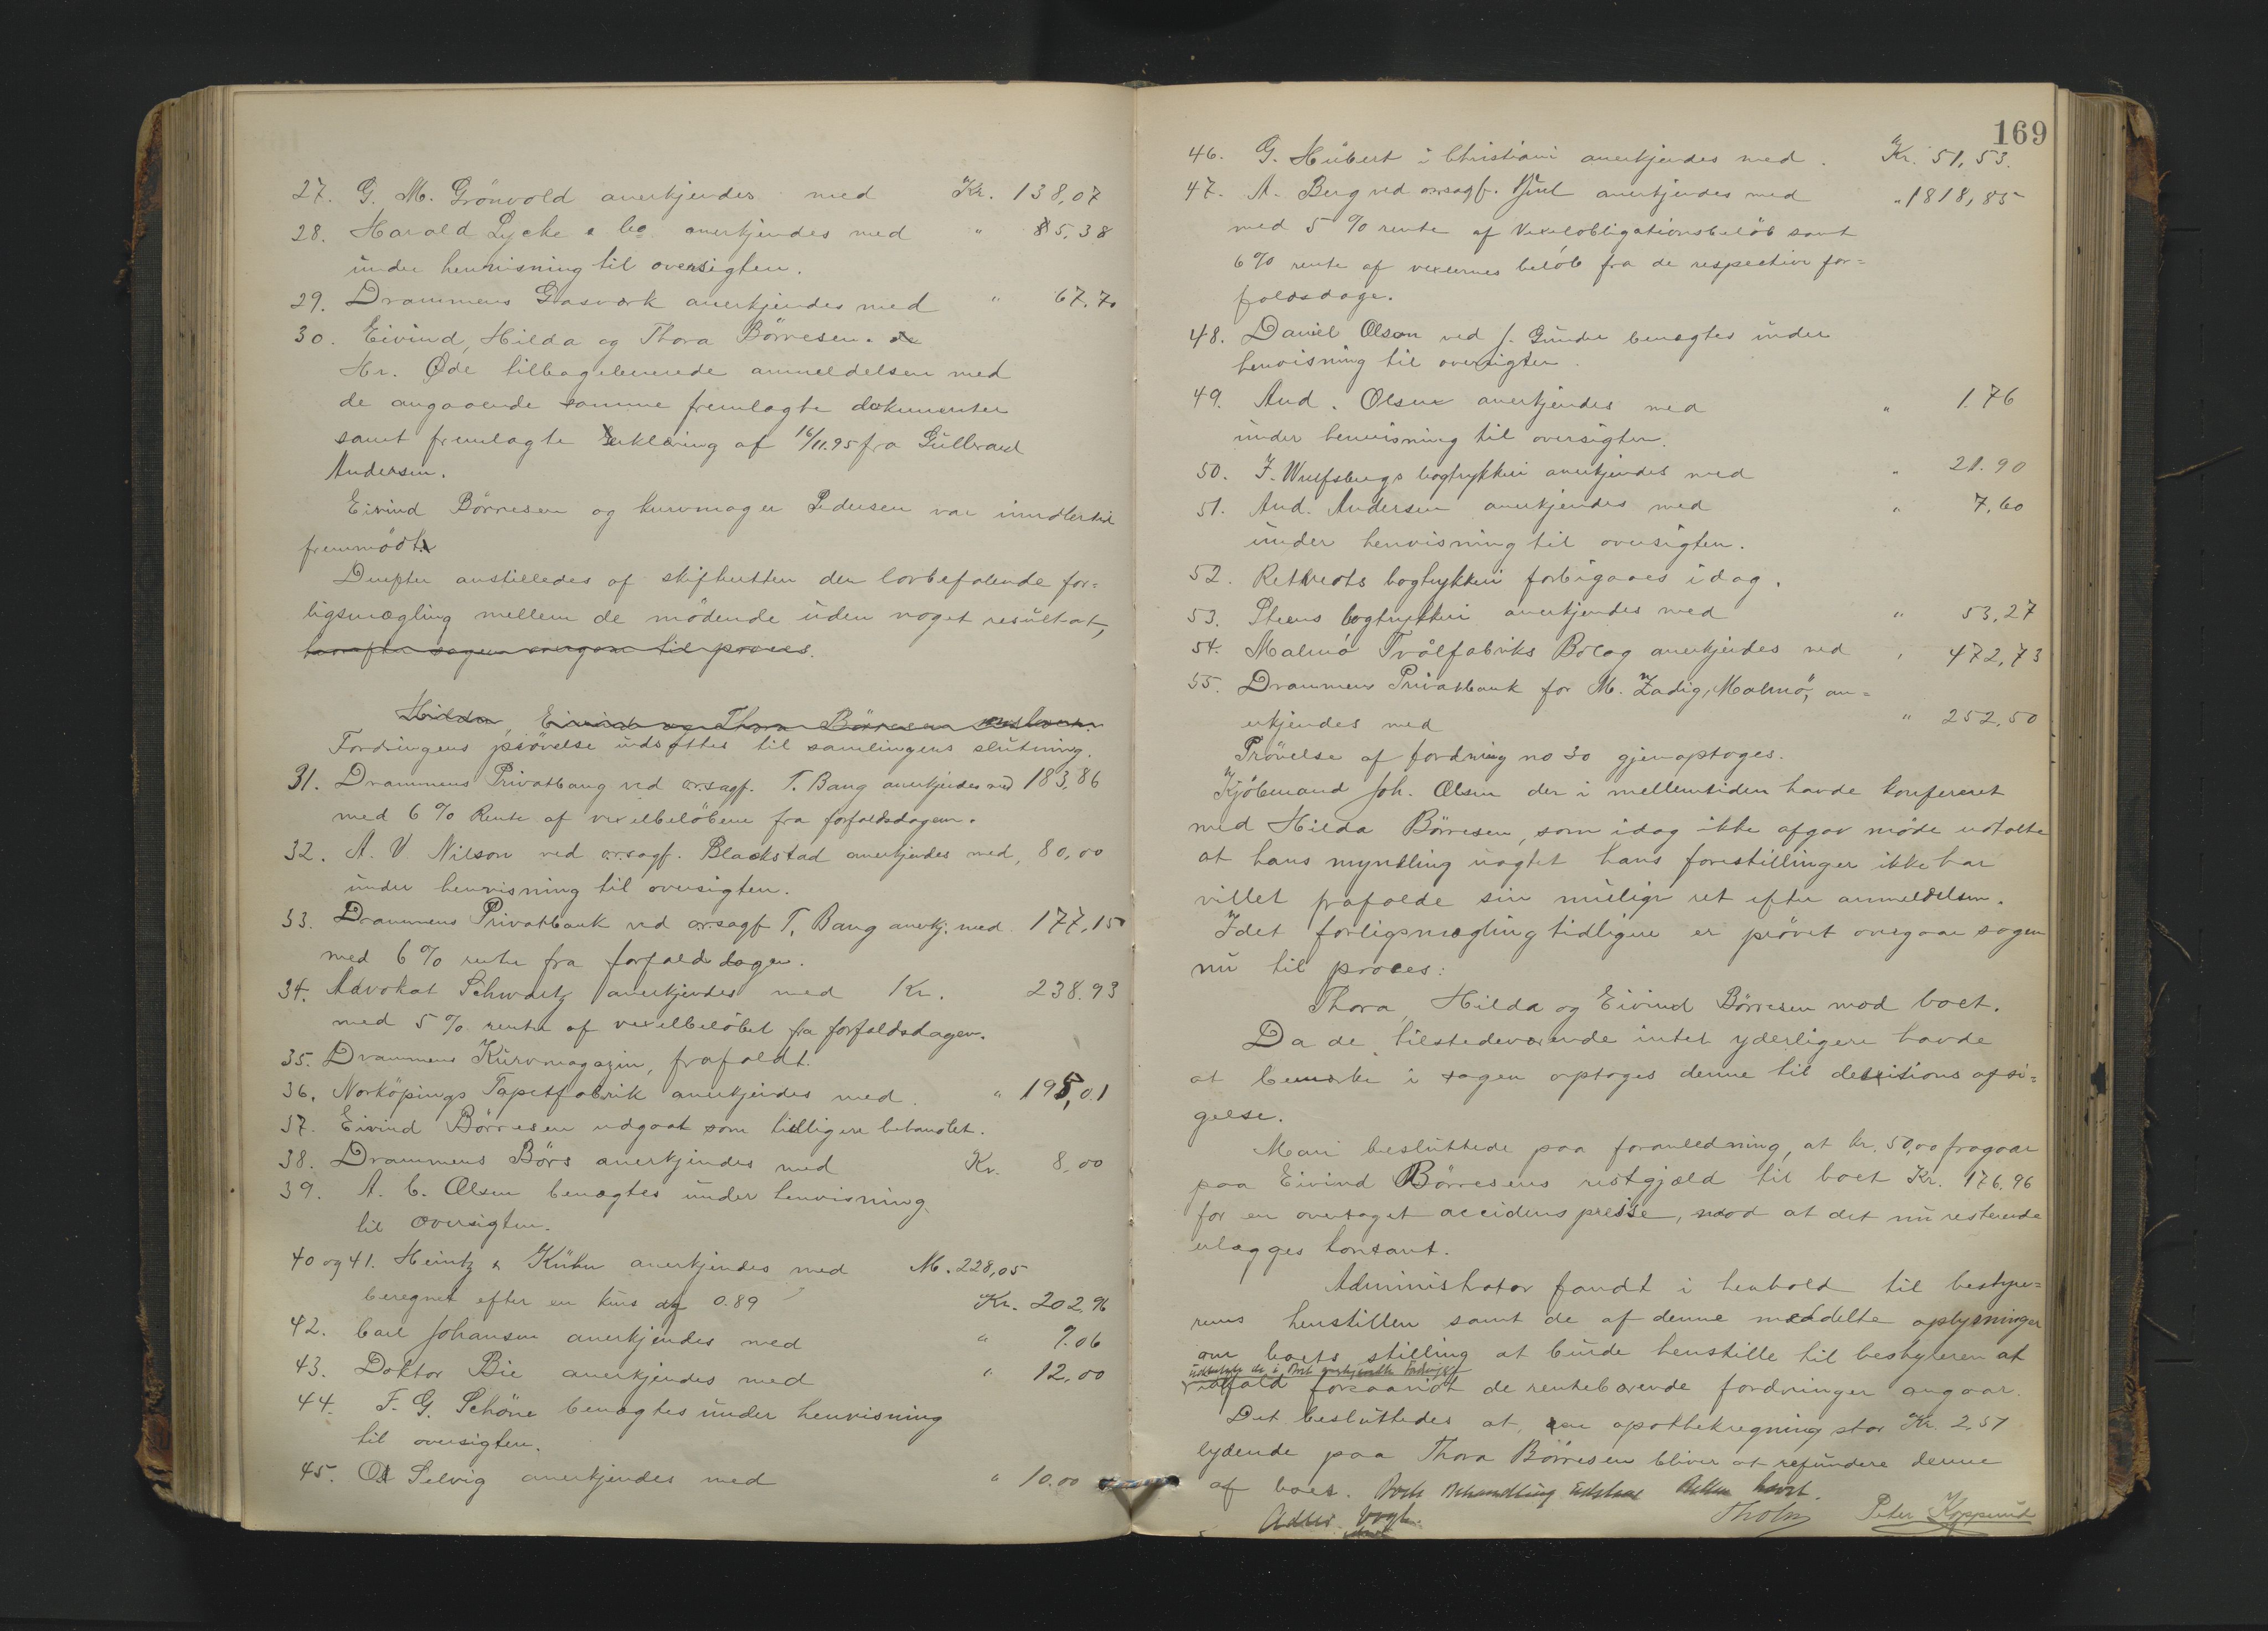 27. G. M. Grönvold anerkjendes med Kr. 138,07
28. Harald Lycke & Co. anerkjendes med " 85,38
under henvisning til oversigten.
29. Drammens Gasværk anerkjendes med " 67.70
30. Eivind, Hilda og Thora Börresen.
Hr. Øde tilbageleverede anmeldelsen med
de angaaende samme fremlagte dokumenter
samt fremlagte erklæring af 16/11.95 fra Gulbrand
Andersen.
Eivind Börresen og kurvmager Pedersen var imidlertid
fremmödt.
Derefter anstilledes af skifteretten den lovbefalende for=
ligsmægling mellem de mödende uden noget resultat,
hvorefter sagen overgaar til proces.
Hilda, Eivind og Thora Börresen
Fordringens prövelse udsattes til samlingens slutning.
31. Drammens Privatbang ved o.r.sagf. T. Bang anerkjendes med 183,86
med 6 % Rente af vexelbelöbene fra forfaldsdagen.
32. A. V. Nilson ved o.r.sagf. Blackstad anerkjendes med, 80,00
under henvisning til oversigten.
33. Drammens Privatbank ved o.r.sagf T. Bang anerkj. med 177,15
med 6 % rente fra forfalddagen.
34. Advokat Schwartz anerkjendes med Kr. 238.93
med 5 % rente af vexelbelöbet fra forfaldsdagen.
35. Drammens Kurvmagazin, frafaldt.
36. Norköpings Tapetfabrik anerkjendes med. " 195,01
37. Eivind Börresen udgaat som tidligere behandlet.
38. Drammens Börs anerkjendes med Kr. 8,00
39. A. C. Olsen benægtes under henvisning
til oversigten.
40 og 41. Heintz & Kühn anerkjendes med M. 228,05
beregnet efter en kurs af 0.89 Kr. 202,96
42. Carl Johansen anerkjendes med " 7.06
43. Doktor Bie anerkjendes med " 12,00
44. F. G. Schöne benægtes under henvisning
til oversigten.
45. Ol Selvig anerkjendes med " 10.00
169
46. G. Hübert i Christiani anerkjendes med. Kr. 51,53.
47. A. Berg ved o.r.sagf. Juul anerkjendes med " 1818,85
med 5 % rente af Vexelobligationsbelöb samt
6 % rente af vexlernes belöb fra de respective for=
faldsdage.
48. Daniel Olson ved J. Gunder benægtes under
henvisning til oversigten.
49. And. Olsen anerkjendes med " 1.76
under henvisning til oversigten.
50. J. Wulfsbergs bogtrykkeri anerkjendes med " 21.90
51. And. Andersen anerkjendes med " 7,60
under henvisning til oversigten.
52. bogtrykkeri forbigaaes idag.
53. Steens bogtrykkeri anerkjendes med " 53,27
54. Malmö Tvålfabriks Bolag anerkjendes med " 472,73
55. Drammens Privatbank for M. Zadig, Malmö, an=
erkjendes med " 252,50
Prövelse af fordring no 30 gjenoptoges.
Kjöbmand Joh. Olsen der i mellemtiden havde konfereret
med Hilda Börresen, som idag ikke afgav möde udtalte
at hans myndling uagtet hans forestillinger ikke har
villet frafalde sin mulige ret efter anmeldelsen.
Idet forligsmægling tidligere er prövet overgaar sagen
nu til proces:
Thora, Hilda og Eivind Börresen mod boet.
Da de tilstedeværende intet yderligere havde
at bemærke i sagen optoges denne til decisions afsi=
gelse.
Man besluttede paa foranledning, at kr. 50,00 fragaar
paa Eivind Börresens restgjæld til boet Kr. 176.96
for en overtaget accidenspresse, mod at det nu resterende
erlægges kontant.
Administrator fandt i henhold til bestyre=
rens henstillen samt de af denne meddelte oplysninger
om boets stilling at burde henstille til bestyreren at
udbetale de i Boet anerkjendte Fordringer
ialfald forsaavidt de rentebærende fordringer angaar.
Det besluttedes at en apothekregning stor Kr. 2,57
lydende paa Thora Börresen bliver at refundere denne
af boet. Boets Behandling Retten hævet.
Vogt. Tholm Peter Kopperud